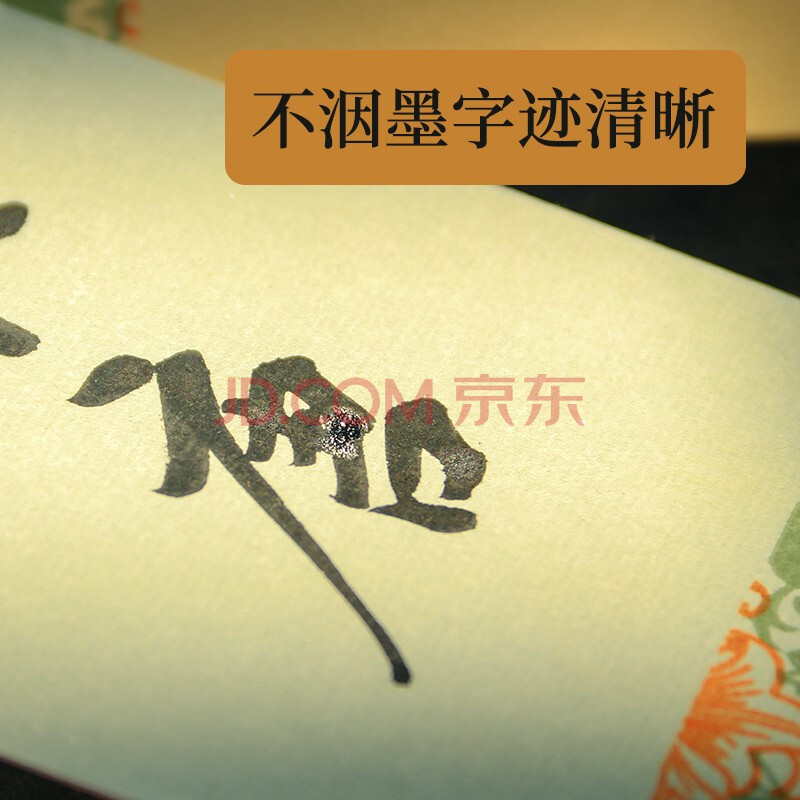 不洇墨字迹清晰
JD.COM 京东